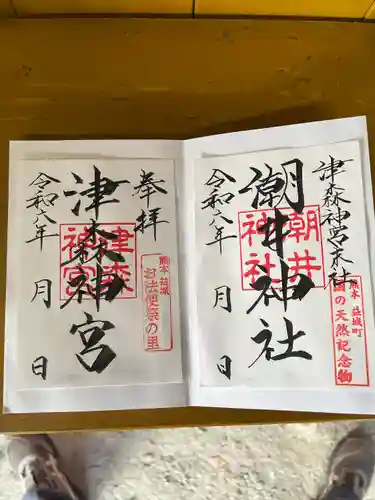 津森神宮末社
潮井神社
潮井
神社
令和六年 月 日
熊本 益城町
国の天然記念物
奉拝
津森神宮
津森
神宮
令和六年 月 日
熊本 益城
お法使祭の里